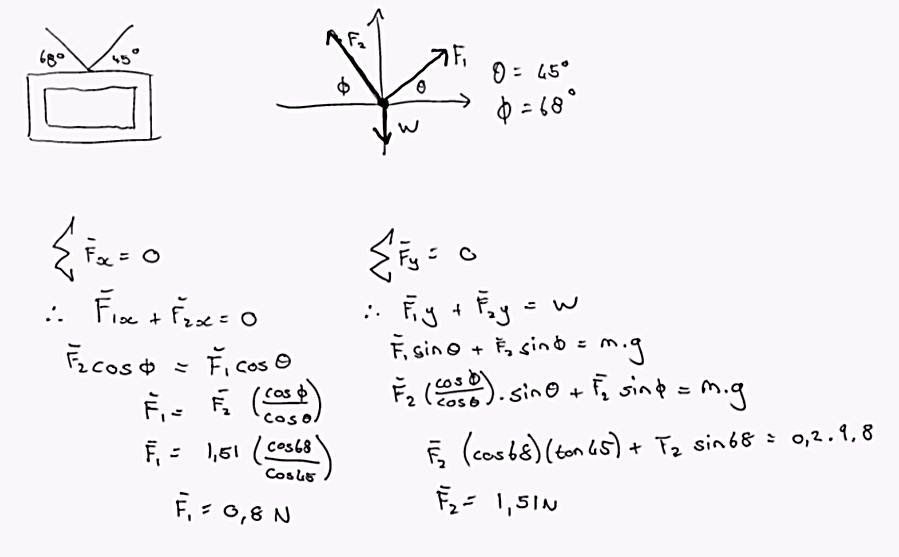 68° 45°
F₂ F₁
φ θ
W
θ = 45°
φ = 68°
Σ F̄x = 0
∴ F̄₁x + F̄₂x = 0
F̄₂ cos φ = F̄₁ cos θ
F̄₁ = F̄₂ (cos φ / cos θ)
F̄₁ = 1,51 (cos68 / cos45)
F̄₁ = 0,8 N
Σ F̄y = 0
∴ F̄₁y + F̄₂y = W
F̄₁ sin θ + F̄₂ sin φ = m.g
F̄₂ (cos φ / cos θ) . sin θ + F̄₂ sin φ = m.g
F̄₂ (cos68)(tan45) + F₂ sin68 = 0,2 . 9,8
F̄₂ = 1,51N